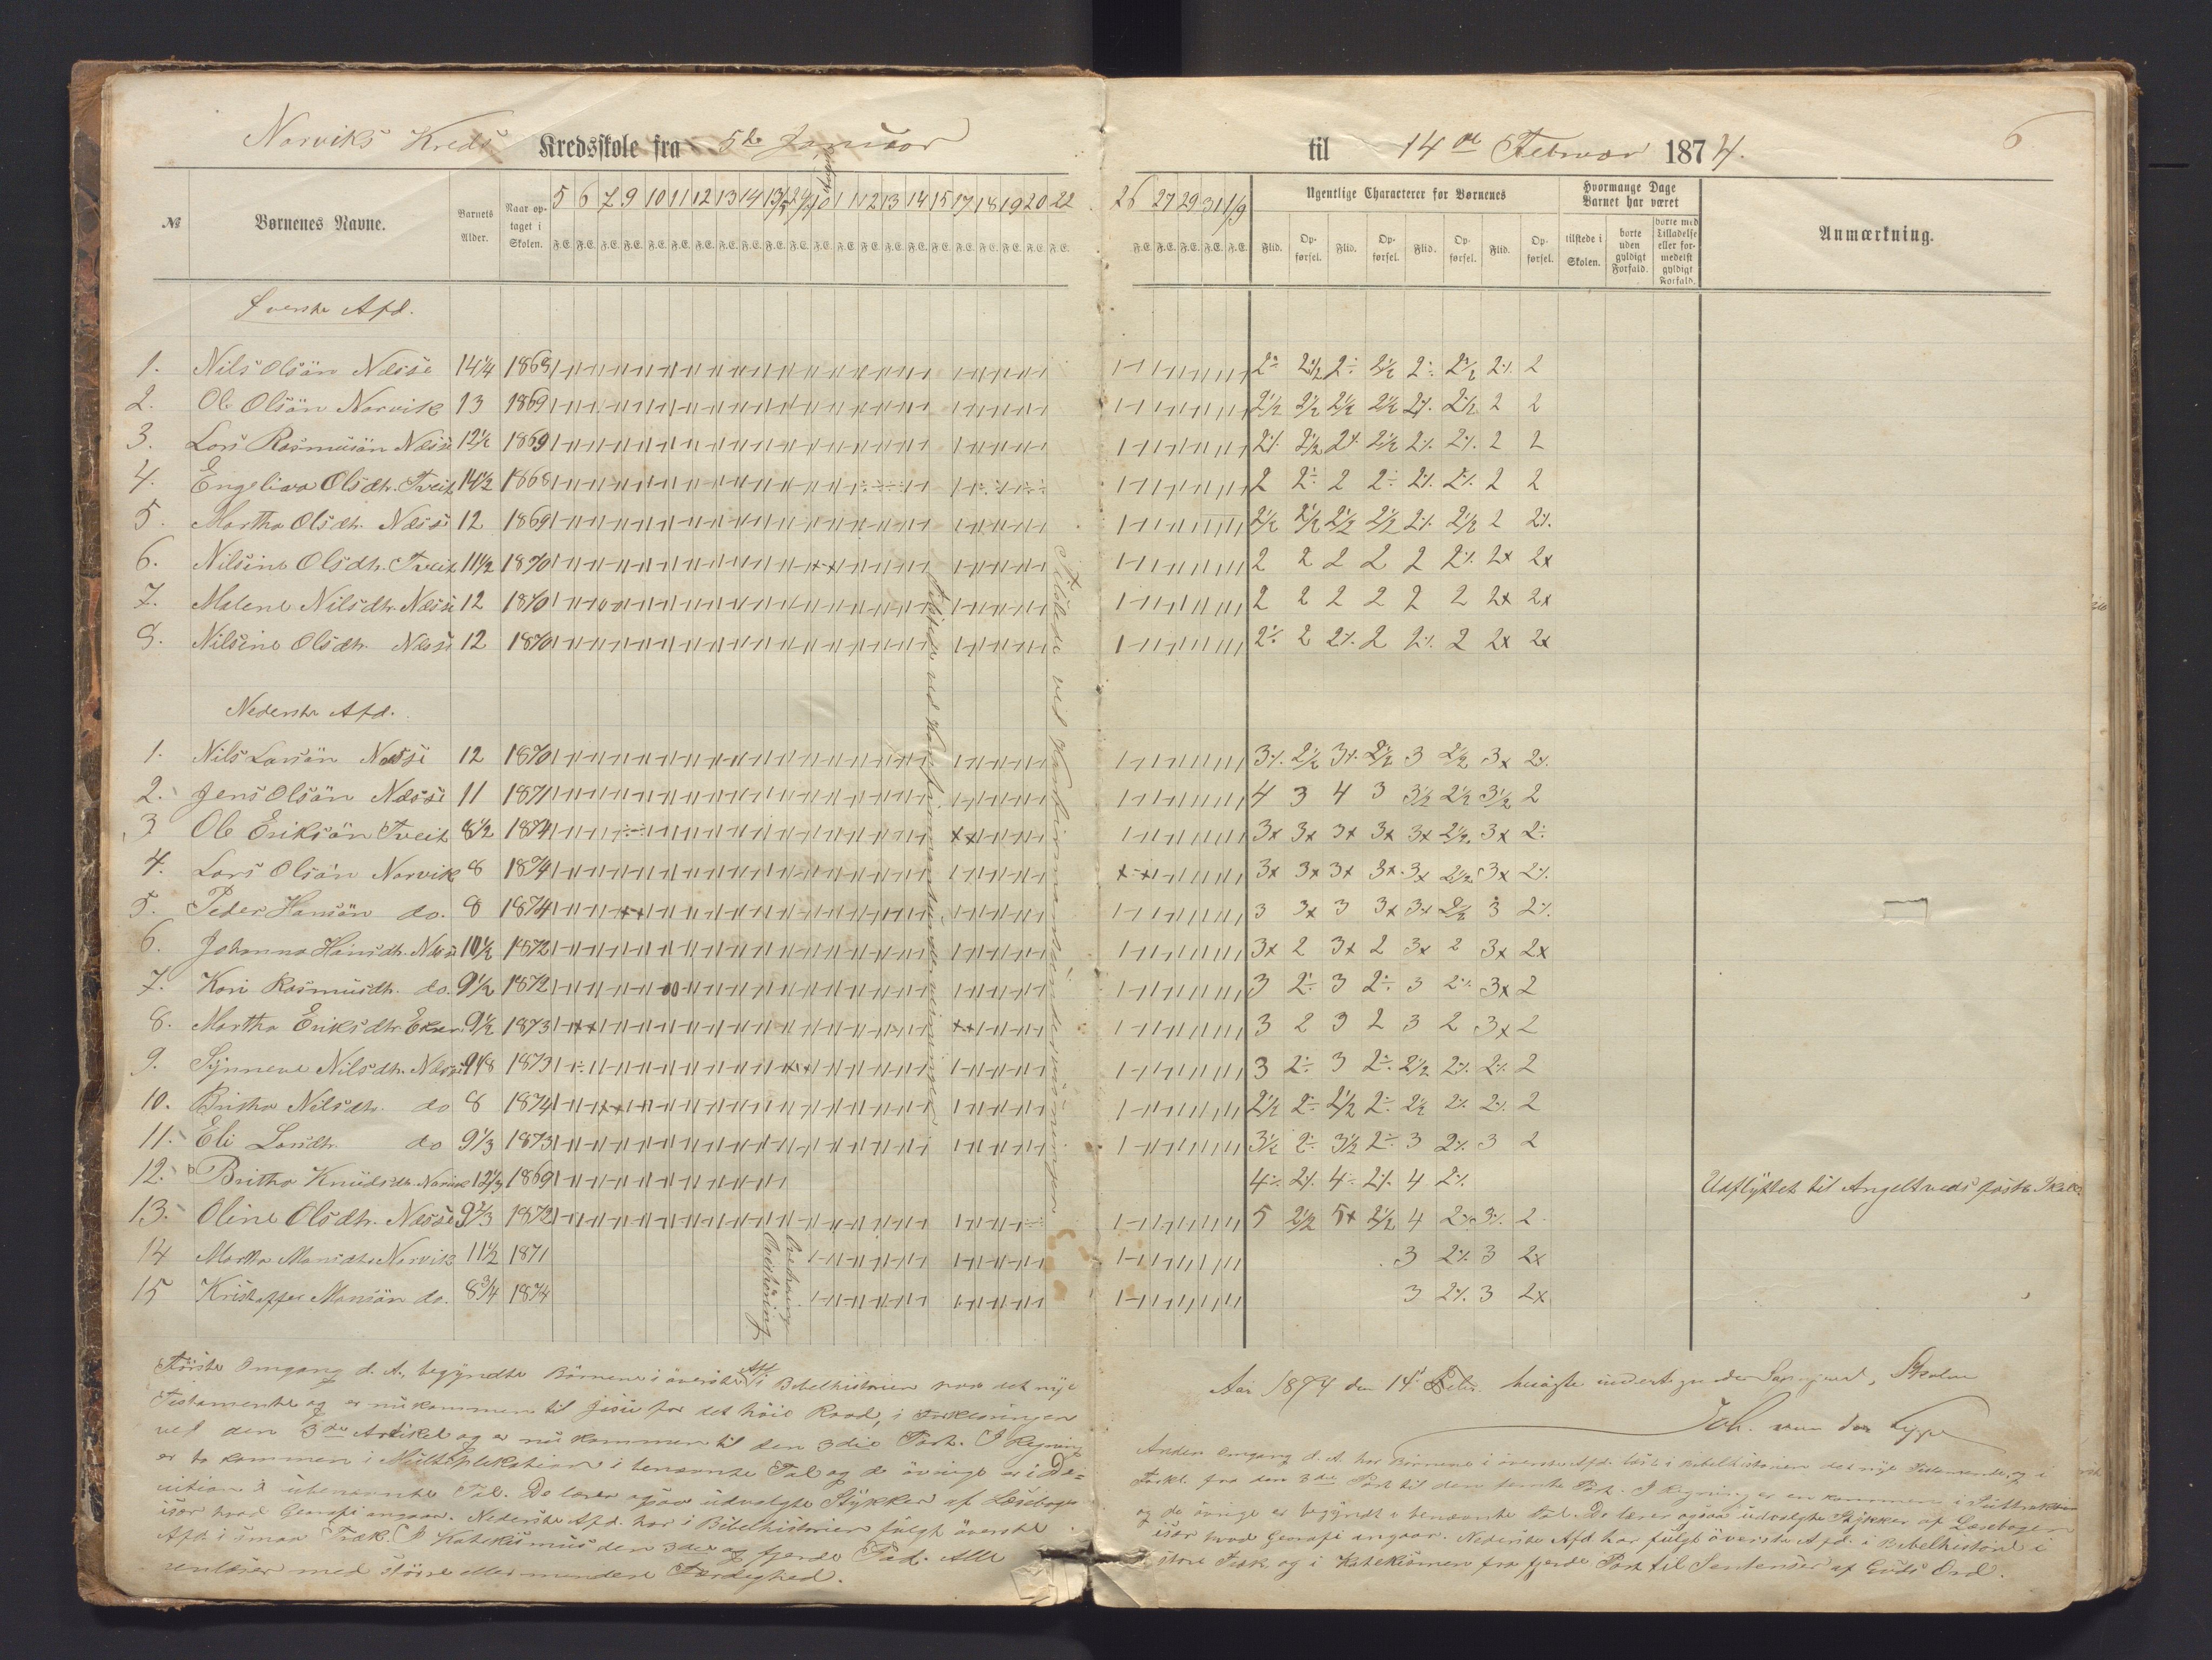 Norviks Kreds Kredsskole fra 5te Januar til 14de Februar 1874. 6
№ Børnenes Navne. Barnets Alder. Naar optaget i Skolen. 5 6 7 9 10 11 12 13 14 10 11 12 13 14 15 17 18 19 20 22 26 27 29 31 1/9 Ugentlige Characterer for Børnenes Hvormange Dage Barnet har været Anmærkning.
F.E. F.E. F.E. F.E. F.E. F.E. F.E. F.E. F.E. F.E. F.E. F.E. F.E. F.E. F.E. F.E. F.E. F.E. F.E. F.E. F.E. F.E. F.E. F.E. F.E. F.E. F.E. Flid. Opførsel. Flid. Opførsel. Flid. Opførsel. Flid. Opførsel. tilstede i Skolen. borte uden gyldigt Forfald. borte med Tilladelse eller formedelst gyldigt Forfald.
Øverste Afd.
1. Nils Olsön Næsse 14 1/4 1868 2÷ 2 1/2 2÷ 2 1/2 2÷ 2 1/2 2÷ 2
2. Ole Olsön Norvik 13 1869 2 1/2 2 1/2 2 1/2 2 1/2 2÷ 2 1/2 2 2
3. Lars Rasmusön Næsse 12 1/2 1869 2÷ 2 1/2 2÷ 2 1/2 2÷ 2÷ 2 2
4. Engelina Olsdtr. Tveit 14 1/2 1868 2 2÷ 2 2÷ 2÷ 2÷ 2 2
5. Martha Olsdtr. Næsse 12 1869 2 1/2 2 1/2 2 1/2 2 1/2 2÷ 2 1/2 2 2÷
6. Nilsine Olsdtr. Tveit 11 1/2 1870 2 2 2 2 2 2÷ 2x 2x
7. Malene Nilsdtr. Næsse 12 1870 2 2 2 2 2 2 2x 2x
8. Nilsine Olsdtr. Næsse 12 1870 2÷ 2 2÷ 2 2÷ 2 2x 2x
Nederste Afd.
1. Nils Larsön Næsse 12 1870 3÷ 2 1/2 3÷ 2 1/2 3 2 1/2 3x 2÷
2. Jens Olsön Næsse 11 1871 4 3 4 3 3 1/2 2 1/2 3 1/2 2
3 Ole Eriksön Tveit 8 1/2 1874 3x 3x 3x 3x 3x 2 1/2 3x 2÷
4. Lars Olsön Norvik 8 1874 3x 3x 3x 3x 3x 2 1/2 3x 2÷
5. Peder Hansön do. 8 1874 3 3x 3 3x 3x 2 1/2 3 2÷
6. Johanna Hansdtr. Næsse 10 1/2 1872 3x 2 3x 2 3x 2 3x 2x
7. Kari Rasmusdtr. do. 9 1/2 1872 3 2÷ 3 2÷ 3 2÷ 3x 2
8. Martha Eriksdtr. 9 1/2 1873 3 2 3 2 3 2 3x 2
9. Synneve Nilsdtr. Næsse 9 1/8 1873 3 2÷ 3 2÷ 2 1/2 2÷ 2÷ 2
10. Britha Nilsdtr. do 8 1874 2 1/2 2÷ 2 1/2 2÷ 2 1/2 2÷ 2÷ 2
11. Eli Larsdtr. do 9 1/3 1873 3 1/2 2÷ 3 1/2 2÷ 3 2÷ 3 2
12. Britha Knudsdtr. Norvik 12 1/3 1869 4÷ 2÷ 4÷ 2÷ 4 2÷ Udflyttet til Angeltveds faste Skole.
13. Oline Olsdtr. Næsse 9 2/3 1872 5 2 1/2 5x 2 1/2 4 2÷ 3÷ 2
14 Martha Monsdtr. Norvik 11 1/2 1871 3 2÷ 3 2x
15 Kristoffer Monsön do. 8 3/4 1874 3 2÷ 3 2x
Tilstede ved Konfirmantundervisningen
Tilstede ved Konfirmantundervisningen
Overhöring
Overhöring
Förste Omgang d. A. begyndte Börnene i överste Afd. i Bibelhistorien paa det nye
Testamente og er nu kommen til Jesus for det höie Raad, i Forklaringen
ved den 3die Artikel og er nu kommen til den 3die Part. I Regning
er to kommen i Multiplikation i benævnte Tal og de övrige er i De-
vition i ubenævnte Tal. De lærer ogsaa udvalgte Stykker af Læsebogen
især hvad Geografi angaar. Nederste Afd. har i Bibelhistorien fulgt överste
Afd. i smaa Træk. I Katekismus den 3die og fjerde Part. Alle
renlæser med större eller mindre Færdighed.
Aar 1874 den 14 Febr. besögte undertegnede Skolen
Joh. van der Lippe
Anden Omgang d. A. har Börnene i överste Afd. læst i Bibelhistorien det nye Testamente og i
Forkl. fra den 3die Part til den femte Part. I Regning er en kommen i Subtraktion
og de övrige er begyndt i benævnte Tal. De lærer ogsaa udvalgte Stykker af Læsebogen
især hvad Geografi angaar. Nederste Afd. har fulgt överste Afd. i Bibelhistorie i
store Træk og i Katekismen fra fjerde Part til Sentenser af Guds Ord.